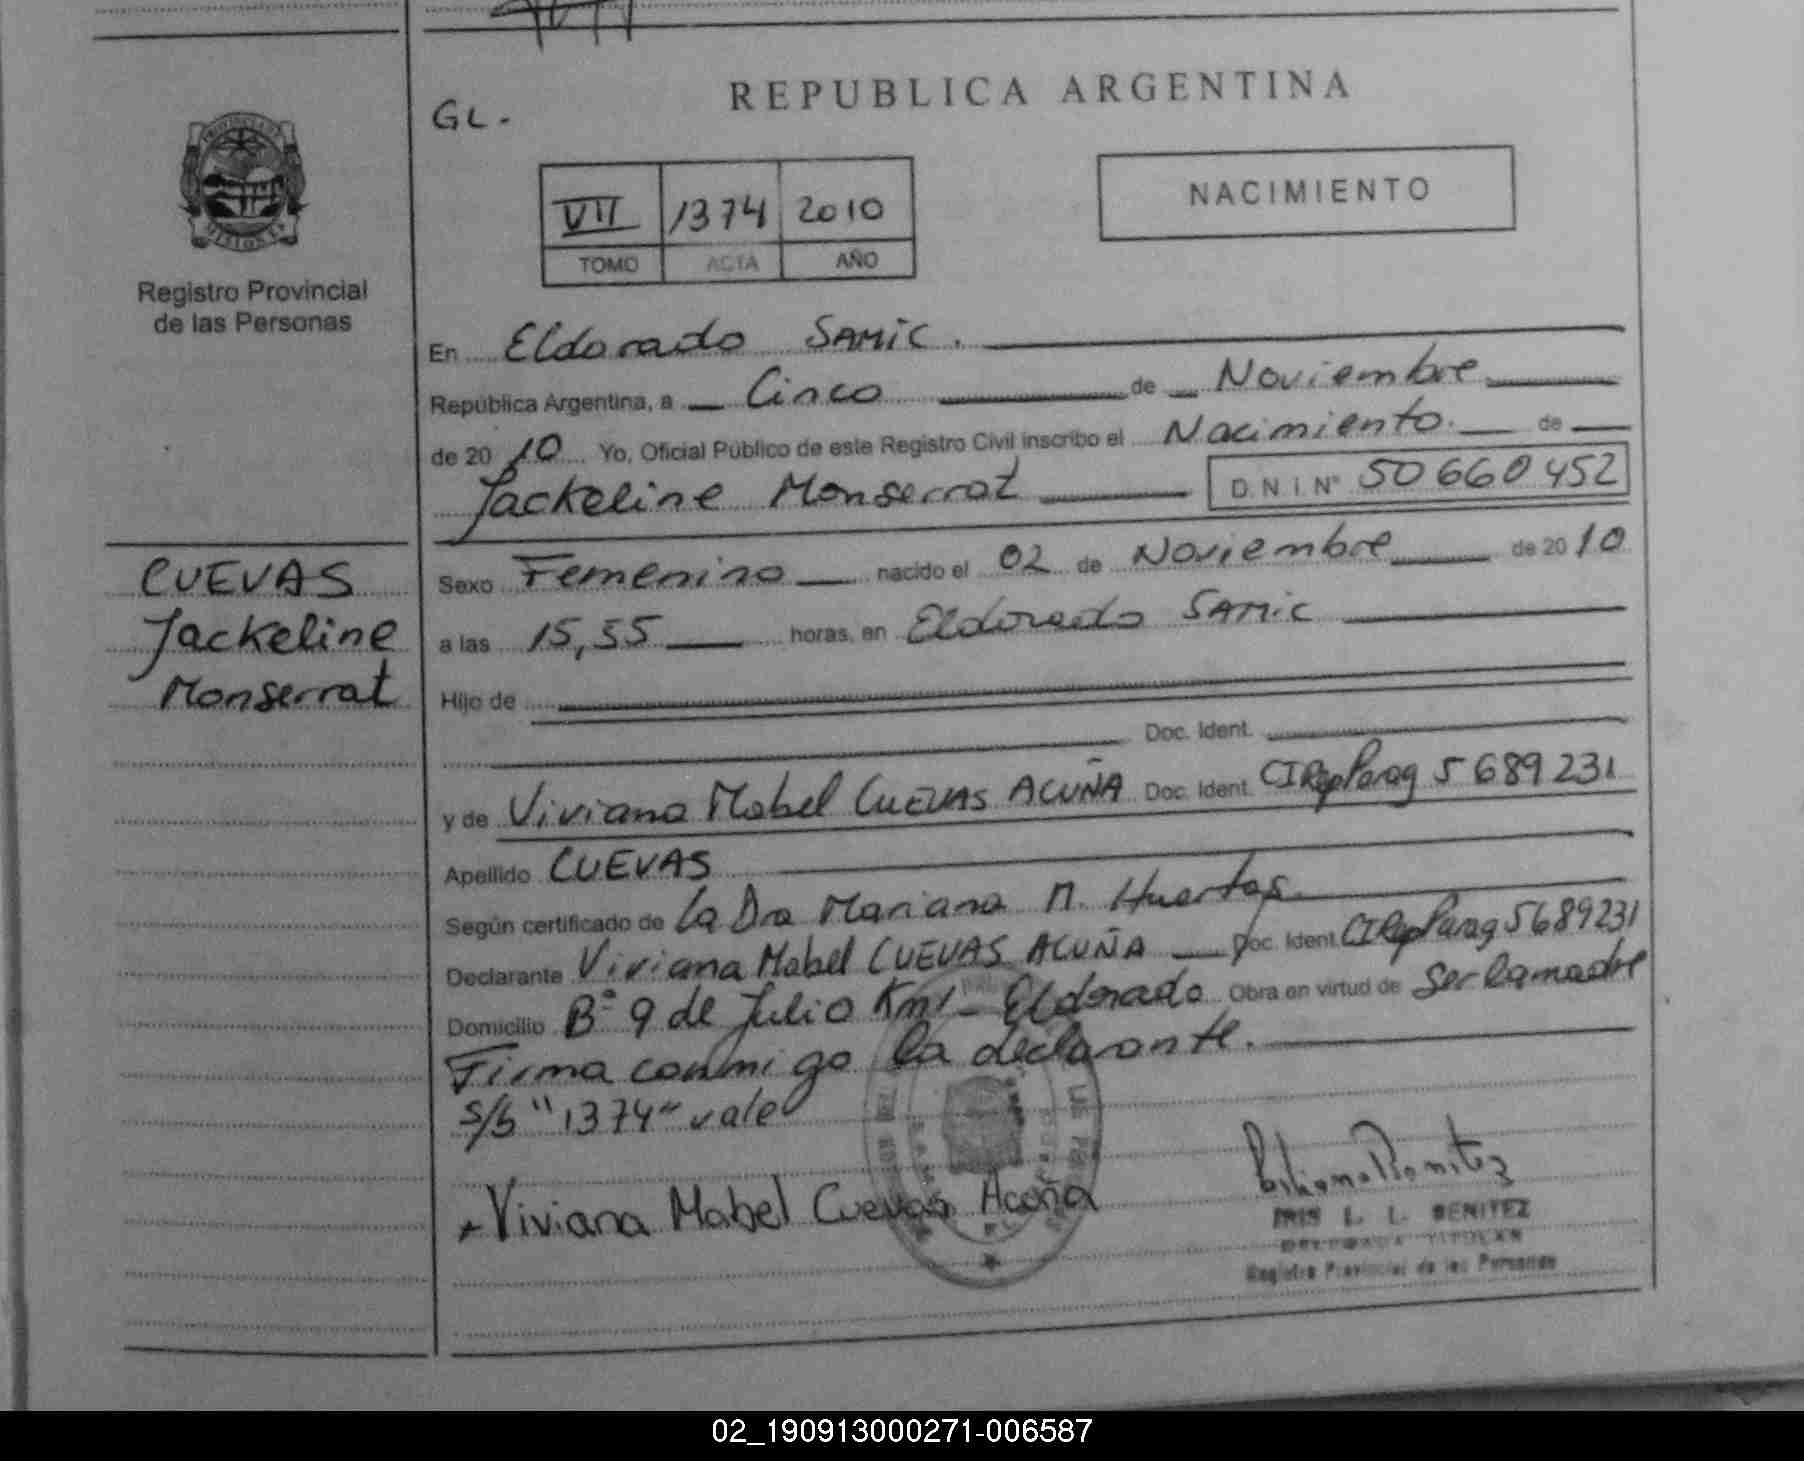 REPUBLICA ARGENTINA
GL.
NACIMIENTO
VII 1374 2010
TOMO ACTA AÑO
PROVINCIA DE
MISIONES
Registro Provincial
de las Personas
En Eldorado SAMIC.
República Argentina, a Cinco de Noviembre
de 20 10 Yo, Oficial Público de este Registro Civil inscribo el Nacimiento. de
Jackeline Monserrat D.N.I. Nº 50660452
CUEVAS
Jackeline
Monserrat
Sexo Femenino nacido el 02 de Noviembre de 20 10
a las 15,55 horas, en Eldorado SAMIC
Hijo de
Doc. Ident.
y de Viviana Mabel CUEVAS ACUÑA Doc. Ident. CI Rep Parag 5689231
Apellido CUEVAS
Según certificado de La Dra Mariana M. Huertas.
Declarante Viviana Mabel CUEVAS ACUÑA Doc. Ident. CI Rep Parag 5689231
Domicilio Bº 9 de Julio Km 1 - Eldorado Obra en virtud de Ser la madre
Firma conmigo la declarante.
s/b "1374" vale
Viviana Mabel Cuevas Acuña
IRIS L. L. BENITEZ
DELEGADA TITULAR
Registro Provincial de las Personas
02_190913000271-006587